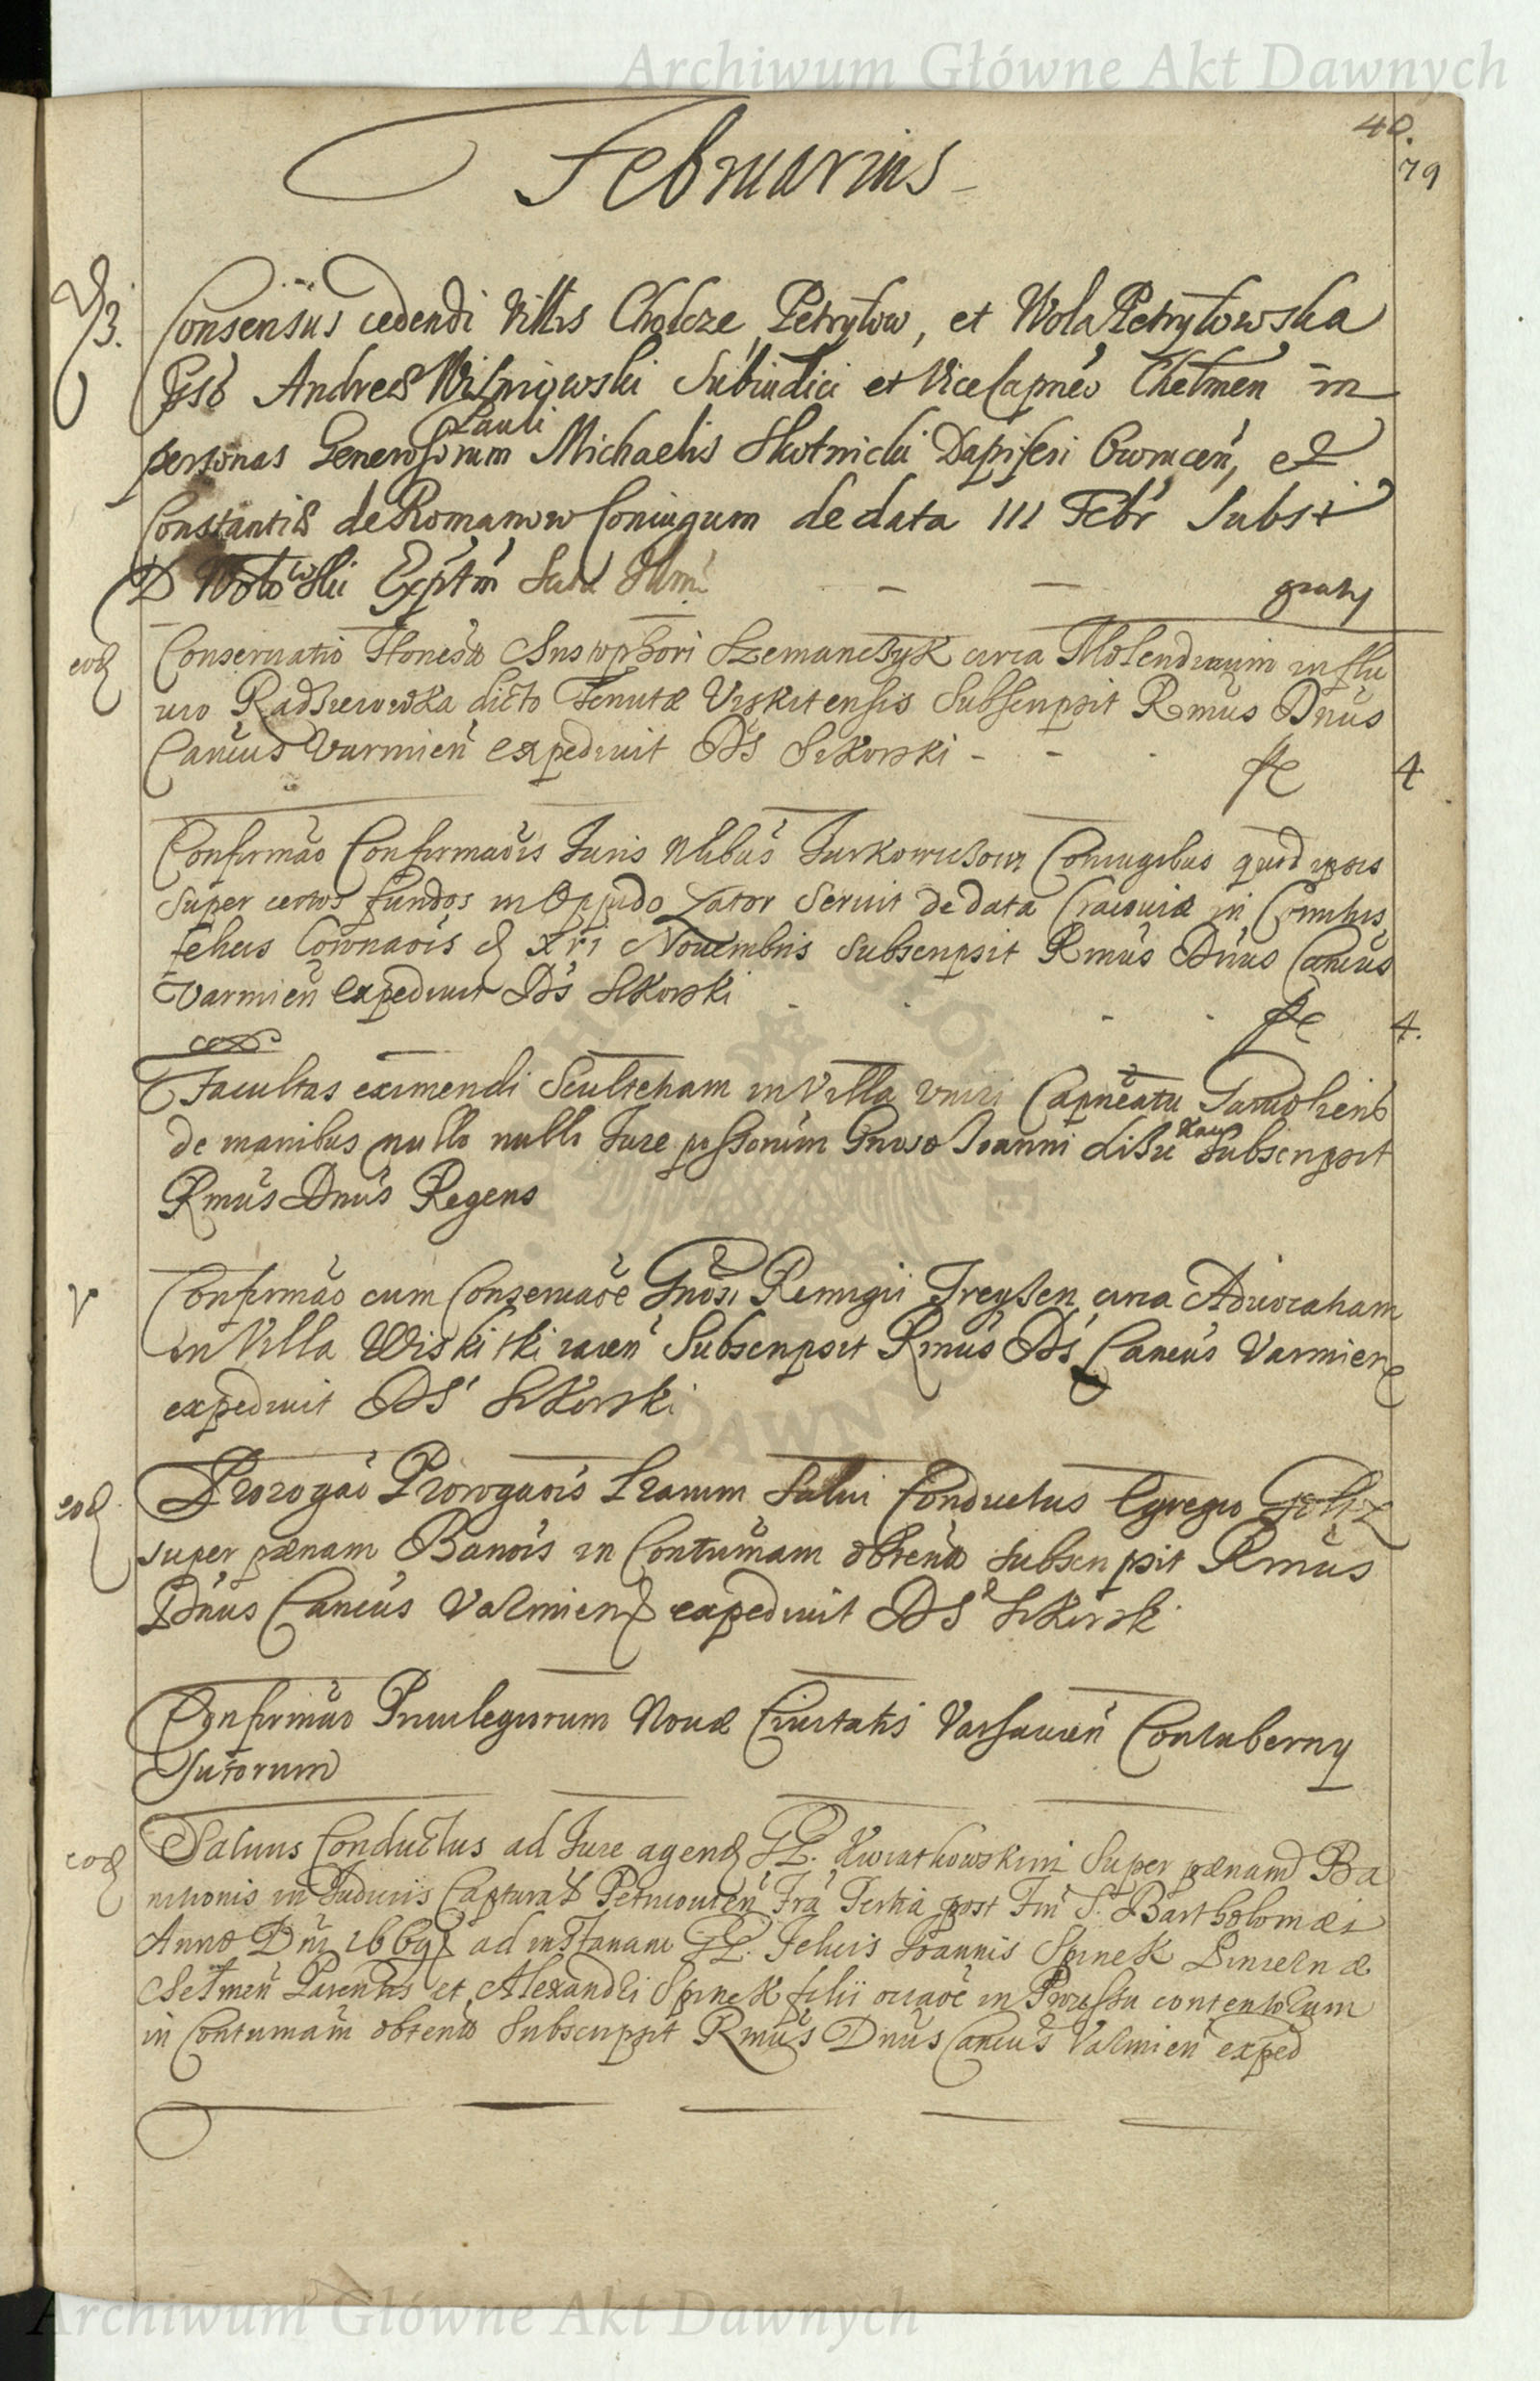 Archiwum Główne Akt Dawnych
40.
79
Februarius
3. Consensus cedendi Villis Cholcze, Petrylow, et Wola Petrylowska
Gso Andreæ Wisniowski Subiudici et ViceCapneo Chelmen in
Pauli
personas Generosorum Michaelis Skotnicki Dapiferi Owrucen, et
Constantiæ de Romanow Coniugum de data III Febr Subst
D Wolowski Exptm
gratis
eod Conseruatio Honesto Szemanczyk circa Molendinum in flu
uio Radziewowska dicto Tenutæ Viskitensis Subscripsit Rmus Dnus
Cancus Varmien expediuit Ds Sikorski - - . 4
Confirmao Confirmaois Iuris Nlibus Iurkowiczow Coniugibus quod ipsis
super certos fundos in Oppido Zator Seruit de data Cracouiæ in Comitijs
felicis Coronaois d XVI Nouembris subscripsit Rmus Dnus Cancus
Varmien expediuit Ds Sikorski . . . . 4.
Facultas eximendi Scultetiam in Villa Capneatu
de manibus nullo nullo Iure possessorum Gnroso Ioanni Subscripsit
Rmus Dnus Regens
V Confirmao cum Conseruaoe Gnosi Remigii circa Aduocatiam
in Villa Wiskitki Subscripsit Rmus Ds Cancus Varmien
expediuit DS Sikorski
eod Prorogao Prorogaois Lrarum Salui Conductus Egregio Goltz
super pænam Banois in Contumam obtentæ subscripsit Rmus
Dnus Cancus Varmien expediuit DS Sikorski
Confirmao Priuilegiorum Nouæ Ciuitatis Varsauien Contubernij
Sutorum
eod Saluus Conductus ad Iure agend GG. Kwiatkowskim super pænam Ba
nitionis in Iudicijs Capturæ Petricouien Fra Tertia post Fm S. Bartholomæi
Anno Dni 1669 ad instanam GG. Felicis Ioannis Spinek Pincernæ
Chelmen Parentis et Alexandri Spinek filii oraoe in Processu contentorum
in Contumam obtento Subscripsit Rmus Dnus Cancus Varmien exped
Archiwum Główne Akt Dawnych